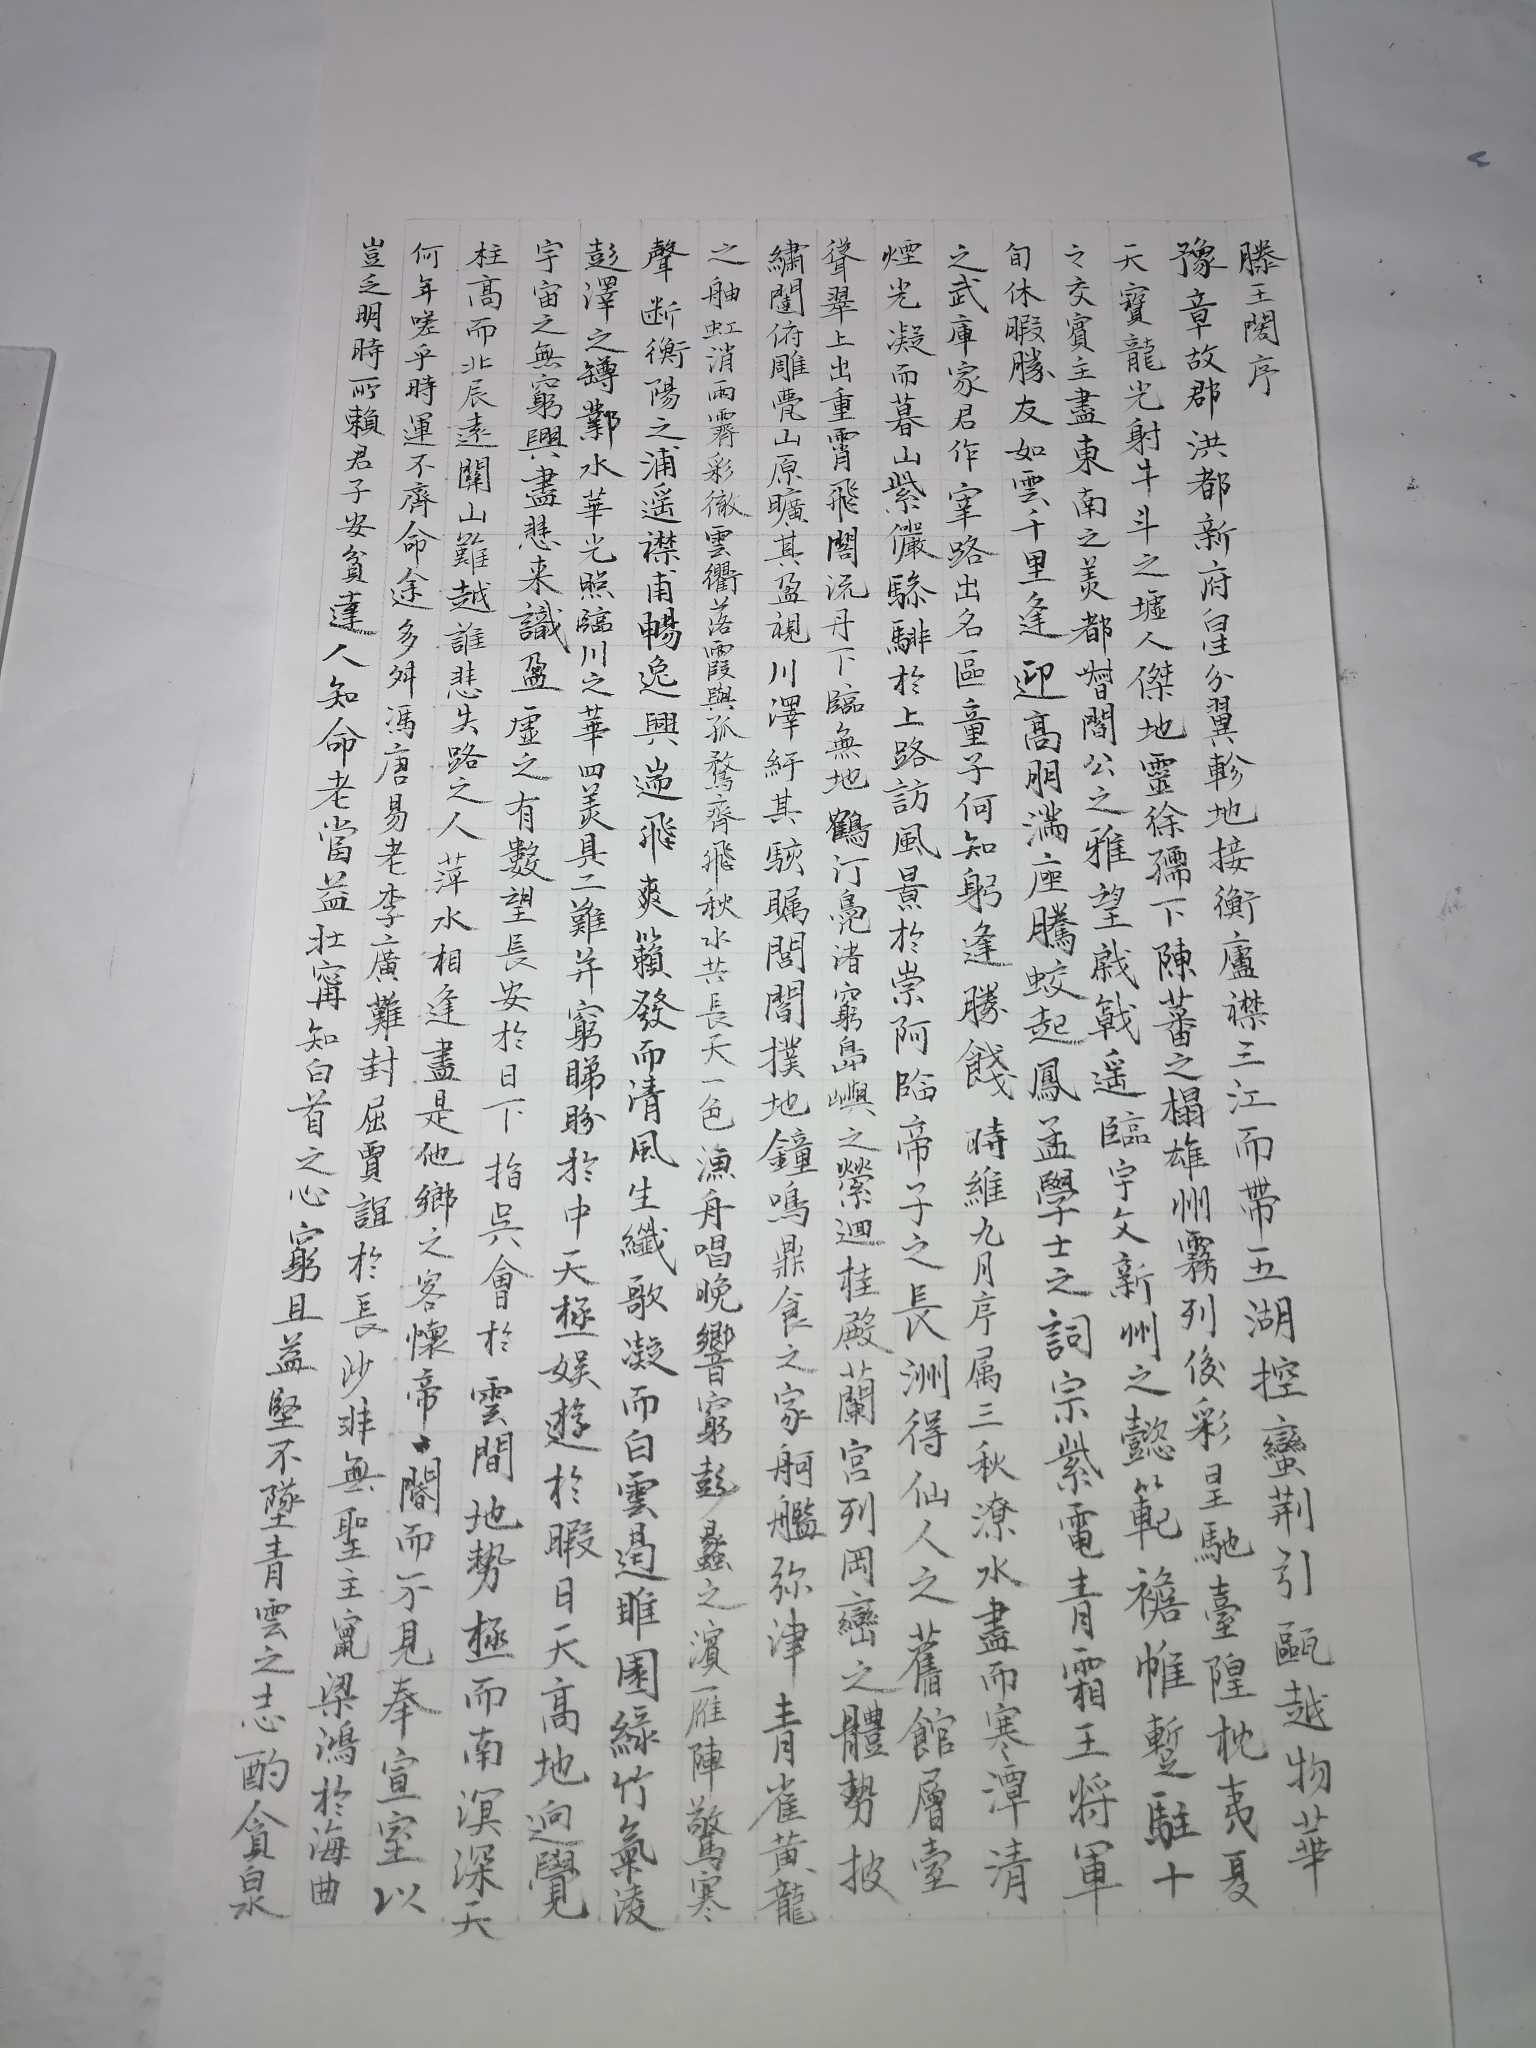 滕王閣序
豫章故郡洪都新府星分翼軫地接衡廬襟三江而帶五湖控蠻荆引甌越物華
天寶龍光射牛斗之墟人傑地靈徐孺下陳蕃之榻雄州霧列俊彩星馳臺隍枕夷夏
之交賓主盡東南之美都督閻公之雅望棨戟遥臨宇文新州之懿範襜帷暫駐十
旬休暇勝友如雲千里逢迎高朋滿座騰蛟起鳳孟學士之詞宗紫電青霜王將軍
之武庫家君作宰路出名區童子何知躬逢勝餞時維九月序属三秋潦水盡而寒潭清
煙光凝而暮山紫儼驂騑於上路訪風景於崇阿臨帝子之長洲得仙人之舊館層臺
聳翠上出重霄飛閣流丹下臨無地鶴汀鳧渚窮島嶼之縈迴桂殿蘭宮列岡巒之體勢披
繡闥俯雕甍山原曠其盈視川澤紆其駭矚閭閻撲地鐘鳴鼎食之家舸艦弥津青雀黄龍
之舳虹消雨霽彩徹雲衢落霞與孤鶩齊飛秋水共長天一色漁舟唱晚響窮彭蠡之濱雁陣驚寒
聲断衡陽之浦遥襟甫暢逸興遄飛爽籟發而清風生纖歌凝而白雲遏睢園緑竹氣凌
彭澤之罇鄴水華光照臨川之華四美具二難并窮睇盼於中天極娱遊於暇日天高地迥覺
宇宙之無窮興盡悲来識盈虚之有數望長安於日下指吳會於雲間地勢極而南溟深天
柱高而北辰遠關山難越誰悲失路之人萍水相逢盡是他鄉之客懷帝閽而不見奉宣室以
何年嗟乎時運不齊命途多舛馮唐易老李廣難封屈賈誼於長沙非無聖主竄梁鴻於海曲
豈乏明時所賴君子安貧達人知命老當益壯寧知白首之心窮且益堅不墜青雲之志酌貪泉